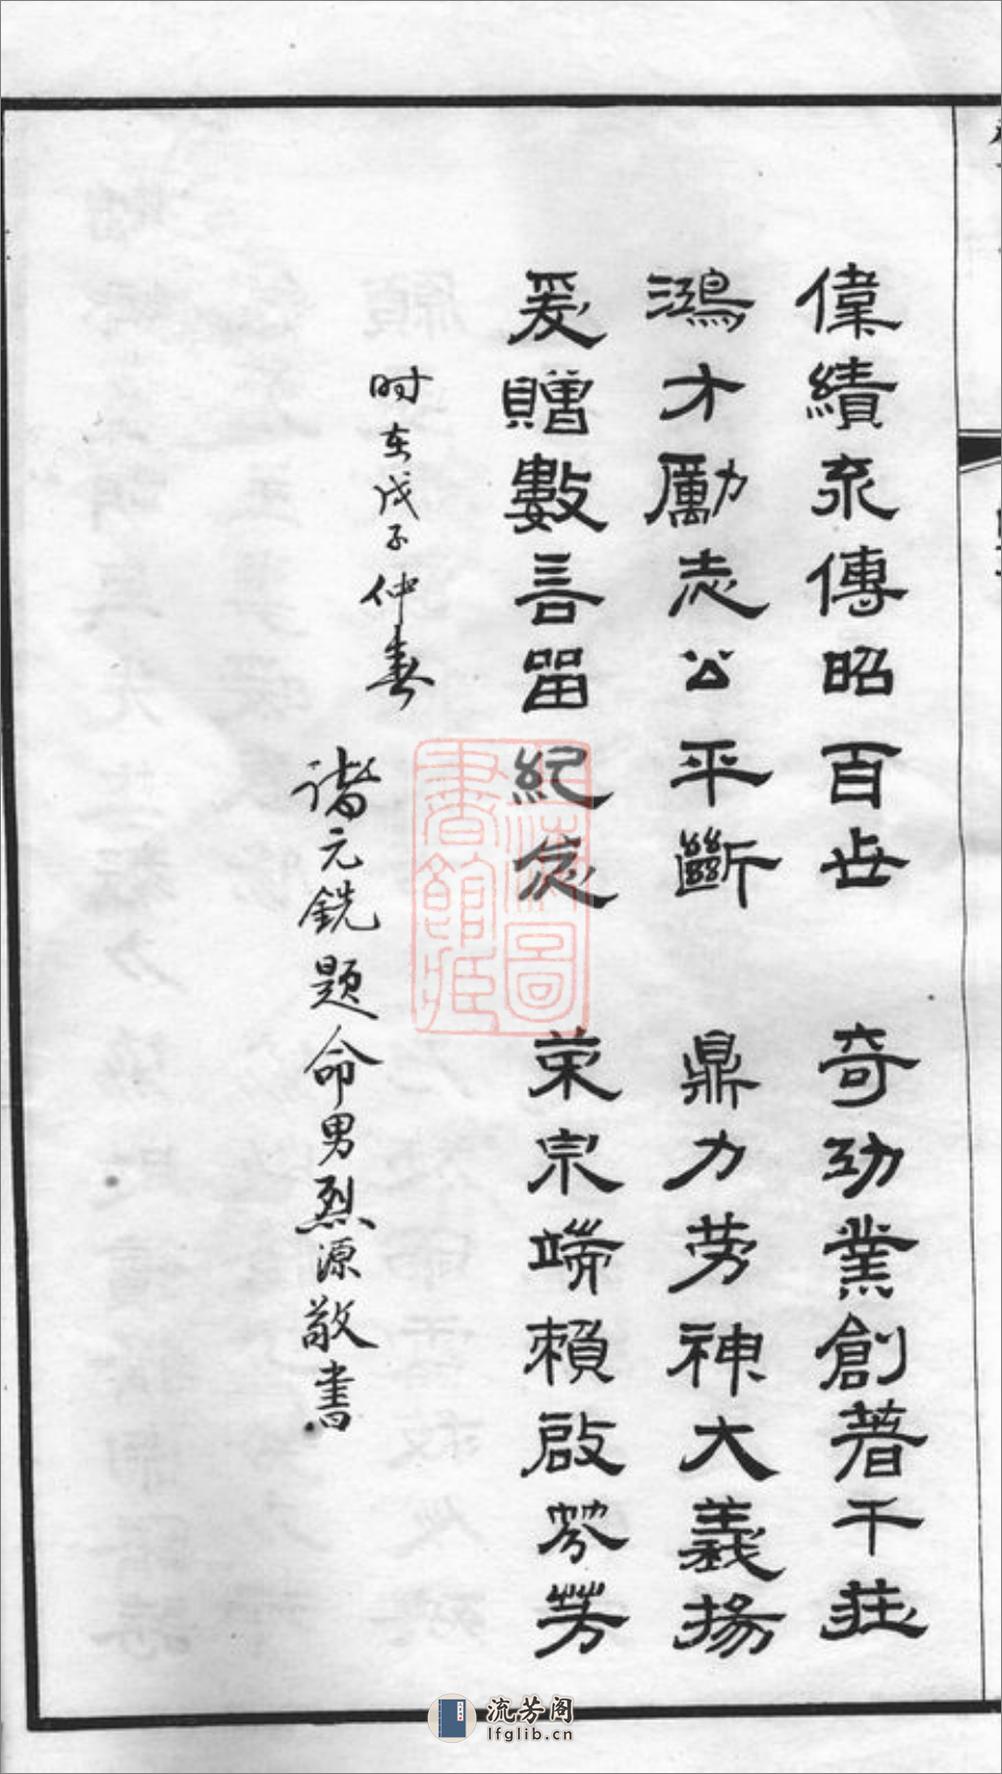 偉績永傳昭百世 奇功業創著千莊
鴻才勵志公平斷 鼎力勞神大義揚
爰贈數言留紀念 榮宗端賴啟芬芳
时在戊子仲春
諸元銑題命男烈源敬書
上海圖書館藏
流芳阁
lfglib.cn